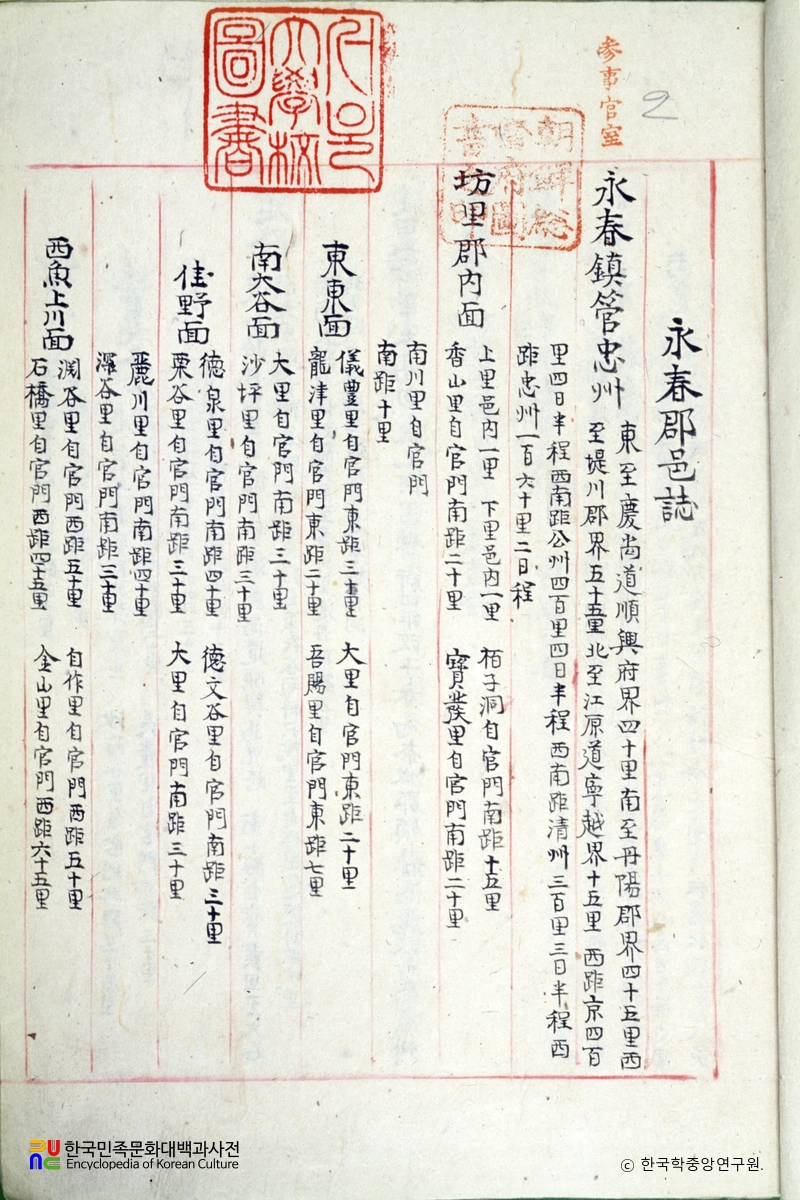 参事官室
2
朝鮮総
督府圖
書之印
永春郡邑誌
永春鎮管忠州
東至慶尚道順興府界四十里南至丹陽郡界四十五里西
至堤川郡界五十五里北至江原道寧越界十五里 西距京四百
里四日半程西南距公州四百里四日半程西南距清州三百里三日半程西
距忠州一百六十里二日程
坊里郡內面
上里邑內一里 下里邑內一里 栢子洞自官門南距十五里
香山里自官門南距二十里 寶發里自官門南距二十里
南川里自官門
南距十里
東東面
儀豊里自官門東距三十里 大里自官門東距二十里
龍津里自官門東距二十里 吾賜里自官門東距七里
南大谷面
大里自官門南距三十里
沙坪里自官門南距三十里
佳野面
德泉里自官門南距四十里 德文谷里自官門南距三十里
栗谷里自官門南距三十里 大里自官門南距三十里
麗川里自官門南距四十里
谷里自官門南距三十里
西魚上川面
渕谷里自官門西距五十里 自作里自官門西距五十里
石橋里自官門西距四十五里 金山里自官門西距六十五里
大學校
圖書
한국민족문화대백과사전
Encyclopedia of Korean Culture
© 한국학중앙연구원.